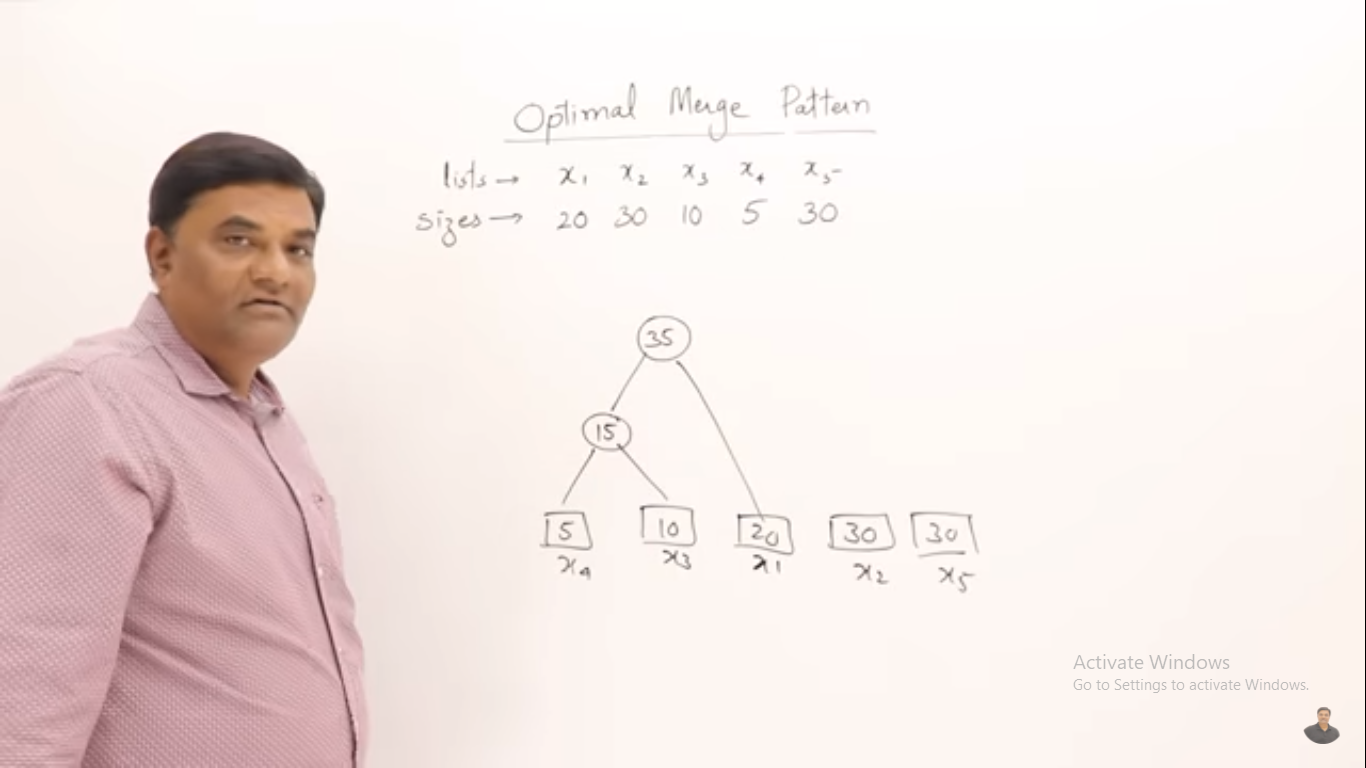 Optimal Merge Pattern
lists → x₁ x₂ x₃ x₄ x₅
sizes → 20 30 10 5 30
35
15
5 10 20 30 30
x₄ x₃ x₁ x₂ x₅
Activate Windows
Go to Settings to activate Windows.